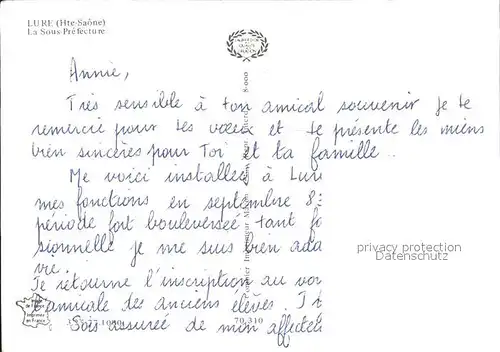 LURE (Hte-Saône)
La Sous-Préfecture
8-000
Annie,
Très sensible à ton amical souvenir je te
remercie pour tes vœux et te présente les miens
bien sincères pour Toi et ta famille..
Me voici installée à Lur
mes fonctions en septembre 8
période fort bouleversée tant fo
sionnelle je me suis bien ada
vie.
privacy protection
Datenschutz
Je retourne l'inscription au vo
l'amicale des anciens élèves. J
Sois assurée de mon affectu
70.310
Imprimé
en France